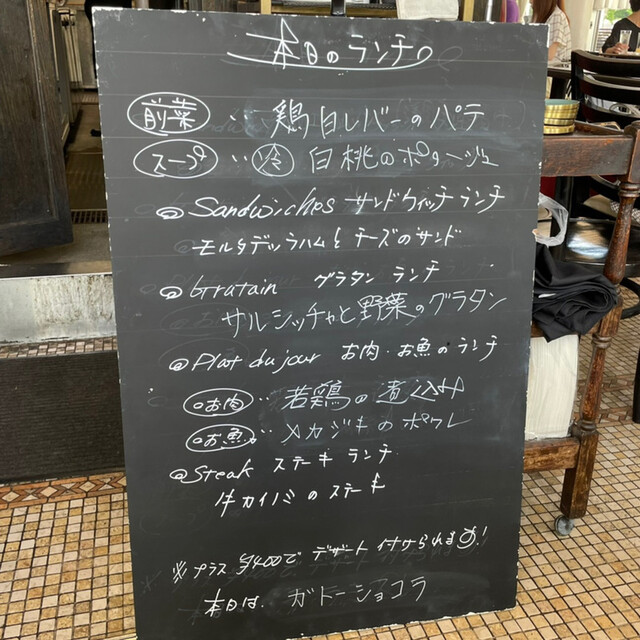 本日のランチ。
前菜 ‥ 鶏白レバーのパテ
スープ ‥ 冷 白桃のポタージュ
@ Sandwiches サンドウィッチ ランチ
モルタデッラハムとチーズのサンド
@ Gratain グラタン ランチ
サルシッチャと野菜のグラタン
@ Plat du jour お肉・お魚のランチ
○お肉 ‥ 若鶏の煮込み
○お魚 ‥ メカジキのポワレ
@ Steak ステーキ ランチ
牛カイノミのステーキ
※プラス ¥400で デザート 付けられます!
本日は、ガトーショコラ